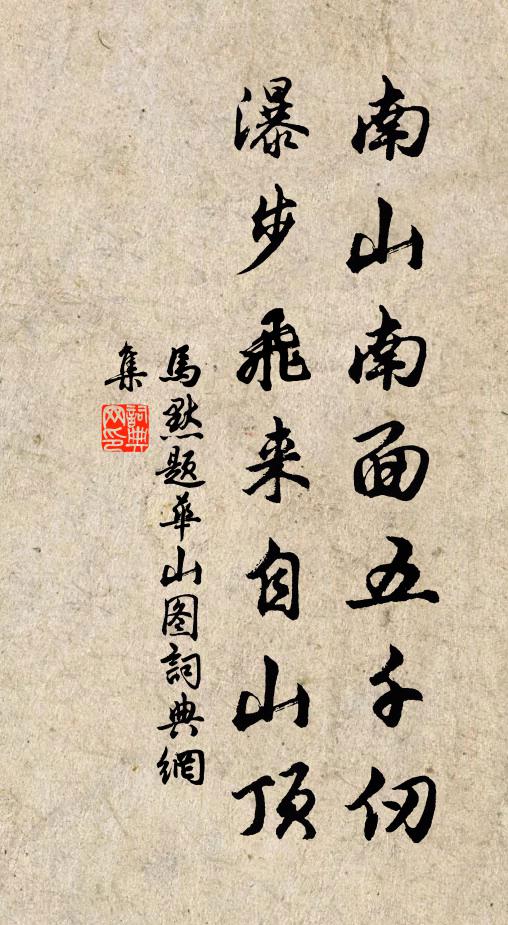 南山南面五千仞
瀑步飛来自山頂
馬默題華山图詞典網
集
詞典
网印